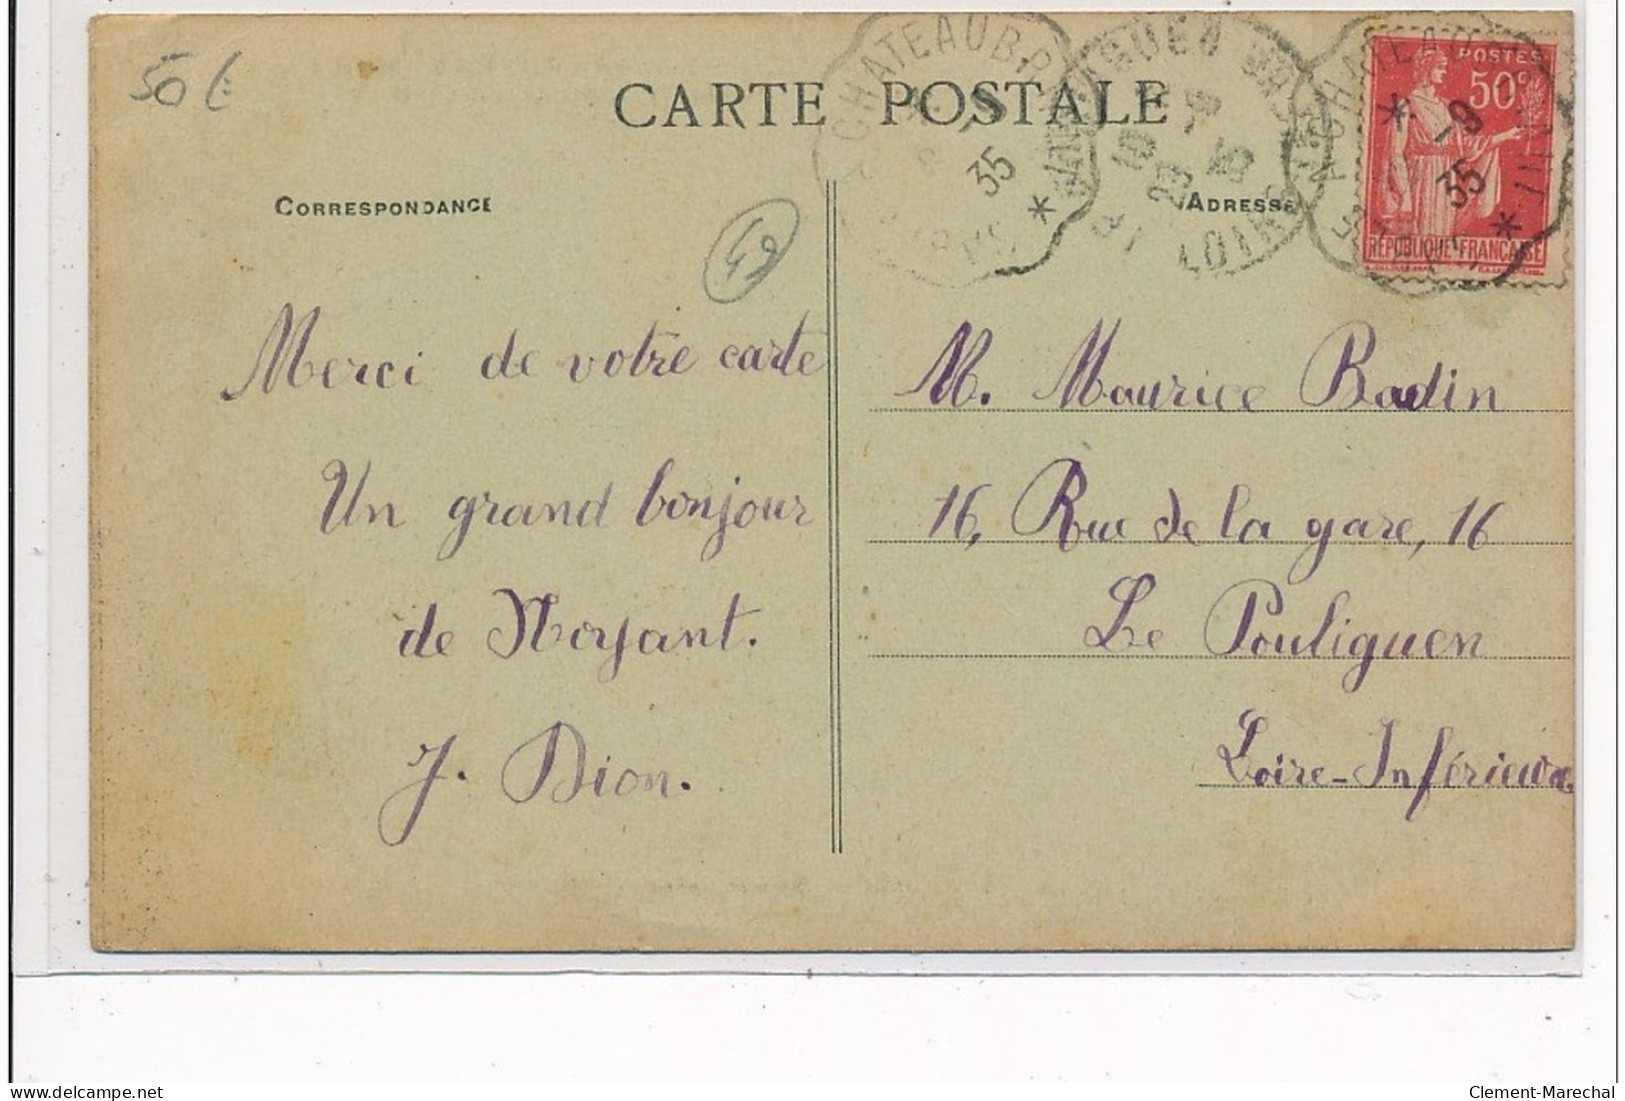 50 €
CARTE POSTALE
CHATEAUBR
35
LOIRE
35
POSTES
50c
RÉPUBLIQUE FRANÇAISE
CORRESPONDANCE
ADRESSE
49
Merci de votre carte
Un grand bonjour
de Noyant.
J. Dion.
M. Maurice Badin
16, Rue de la gare, 16
Le Pouliguen
Loire-Inférieure
Clement-Marechal